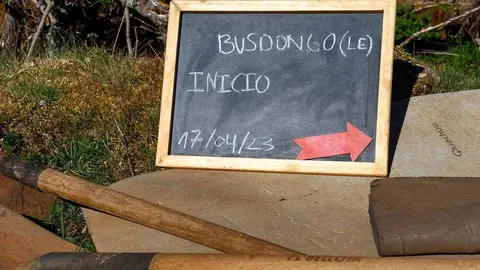 BUSDONGO(LE)
INICIO
17/04/23
BELLOTA